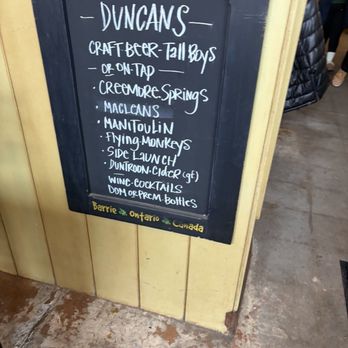 DUNCANS
CRAFT BEER - Tall Boys
- OR ON TAP -
• CREEMORE SPRINGS
• MACLEANS
• MANITOULIN
• FLYING MONKEYS
• SIDE LAUNCH
• DUNTROON. CIDER (gf)
WINE. COCKTAILS
DOM OR PREM. BOTTLES
Barrie Ontario Canada